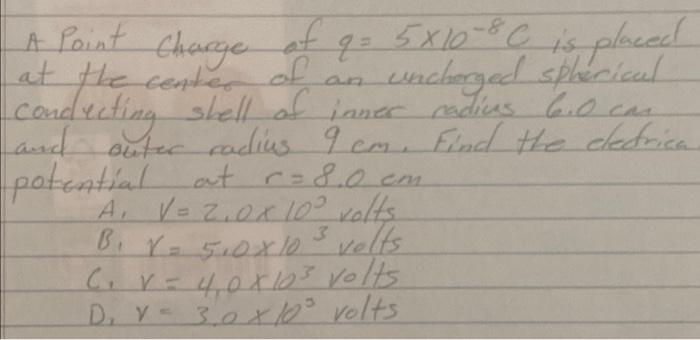 A Point Charge of q = 5×10⁻⁸ C is placed
at the center of an uncharged spherical
conducting shell of inner radius 6.0 cm
and outer radius 9 cm. Find the electrical
potential at r = 8.0 cm
A. V = 2.0 × 10³ volts
B. V = 5.0 × 10³ volts
C. V = 4.0 × 10³ volts
D. V = 3.0 × 10³ volts